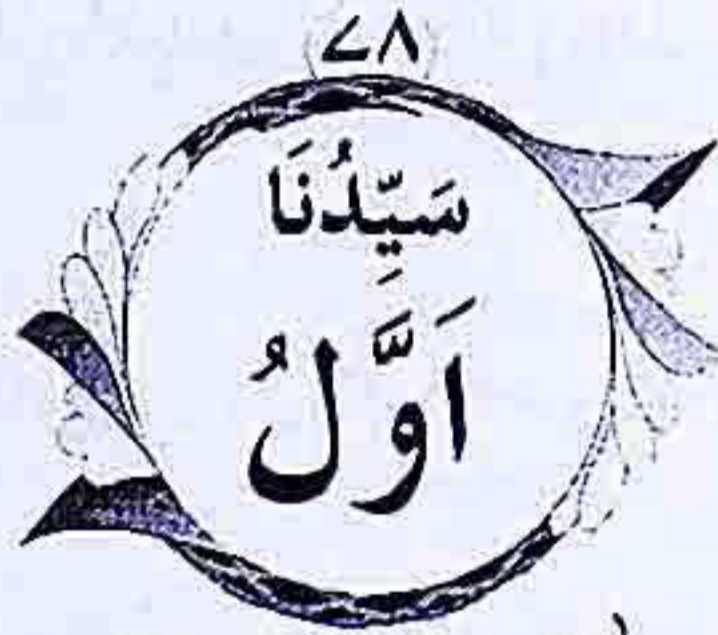 ۷۸
سَيِّدُنَا
اَوَّلُ